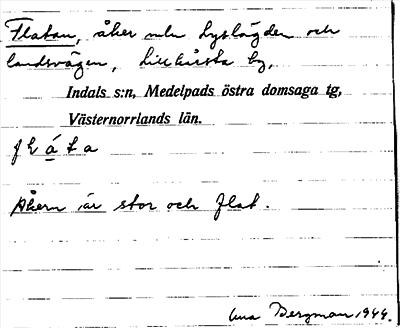 Flatan, åker mln Lyslägden och
landsvägen, Lillhärsta by,
Indals s:n, Medelpads östra domsaga tg,
Västernorrlands län.
Åkern är stor och flat.
Bergman 1944.